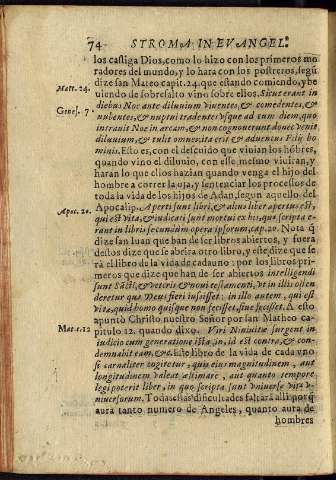 74 STROMA. IN EVANGEL.
los castiga Dios, como lo hizo con los primeros mo
radores del mundo, y lo hara con los postreros, segũ
Matt. 24.
dize san Mateo capit. 24. que estando comiendo, y be
uiendo de sobresalto vino sobre ellos. Sicut erant in
Genes. 7.
diebus Noe ante diluuium viuentes, & comedentes, &
nubentes, & nuptui tradentes vsque ad eum diem, quo
intrauit Noe in arcam, & non cognouerunt donec venit
diluuium, & tulit omnes: ita erit & aduentus Filij ho
minis. Esto es, con el descuido que viuian los hõbres,
quando vino el diluuio, con esse mesmo viuiran, y
haran lo que ellos hazian quando venga el hijo del
hombre a correr la , y sentenciar los processos de
toda la vida de los hijos de Adan, segun aquello del
Apoc. 20.
Apocalip. Aperti sunt libri, & alius liber apertus est,
qui est vita, & iudicati sunt mortui ex his, quæ scripta e-
rant in libris secundum opera ipsorum, cap. 20. Nota q̃
dize san Iuan que han de ser libros abiertos, y fuera
destos dize que se abrira otro libro, y este dize que se
rà el libro de la vida de cada vno: por los libros pri-
meros que dize que han de ser abiertos intelligendi
sunt Sãcti, & veteris & noui testamenti, vt in illis osten
deretur quæ Deus fieri iussisset: in illo autem, qui est
vitæ, quid homo quisque non fecisset, siue fecisset. A esto
Mat. 12
apuntò Christo nuestro Señor por san Matheo Ca-
pitulo 12. quando dixo. Viri Niniuitæ surgent in
iudicio cum generatione ista, in, id est contra, & con-
demnabit eam, & c. Este libro de la vida de cada vno
se carnaliter cogitetur, quis eius magnitudinem, aut
longitudinem valeat æstimare, aut quanto tempore
legi poterit liber, in quo scripta sunt vniuersæ vitæ v-
niuersorum. Todas estas dificultades faltarã alli: porq̃
aura tanto numero de Angeles, quanto aura de
hombres